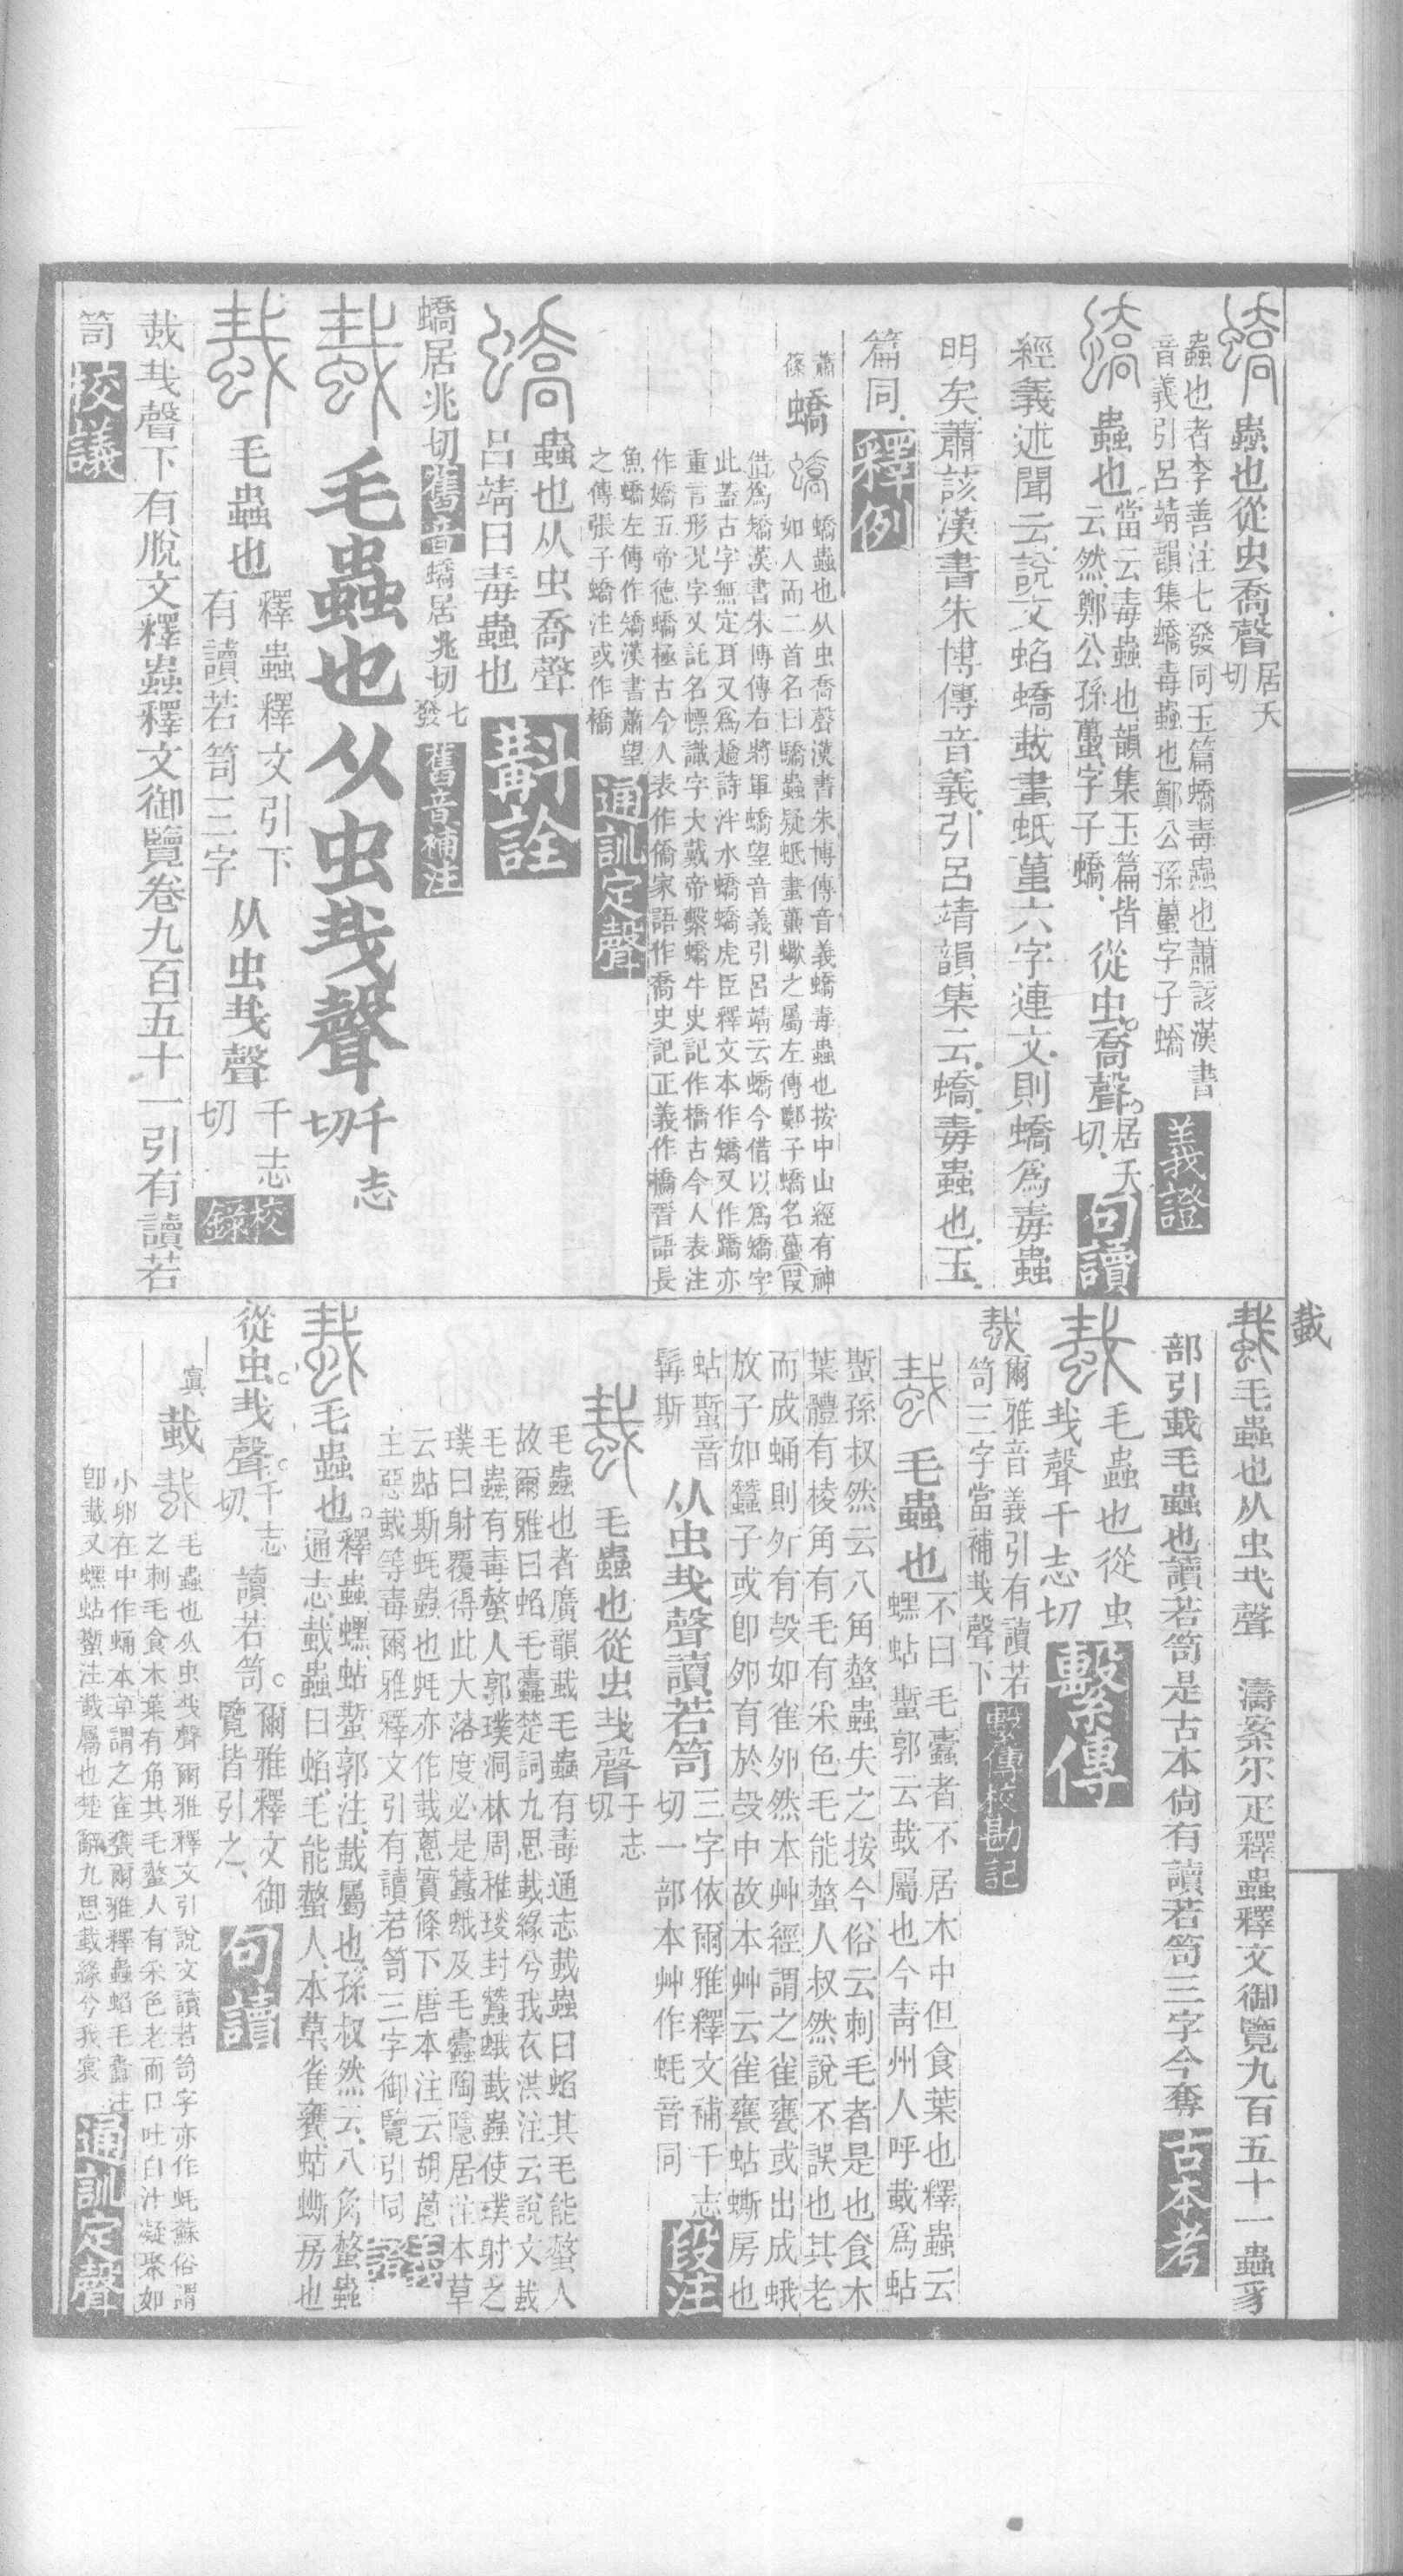 蟲也從虫喬聲居夭切
蟲也者李善注七發同玉篇蟜毒蟲也蕭該漢書
音義引呂靖韻集蟜毒蟲也鄭公孫蠆字子蟜
義證
蟲也當云毒蟲也韻集玉篇皆云然鄭公孫蠆字子蟜從虫喬聲居夭切句讀
經義述聞云說文蜭蟜蛓蚳蠆六字連文則蟜爲毒蟲
明矣蕭該漢書朱博傳音義引呂靖韻集云蟜毒蟲也玉
篇同釋例
蕭篠蟜
蟜蟲也从虫喬聲漢書朱博傳音義蟜毒蟲也按中山經有神
如人而二首名曰驕蟲疑蚳畫蠆蠍之屬左傳鄭子蟜名蠆叚
借爲矯漢書朱博傳右將軍蟜望音義引呂靖云蟜今借以爲矯字
此蓋古字無定耳又爲趫詩泮水蟜蟜虎臣釋文本作矯又作蹻亦
重言形況字又託名幖識字大戴帝繫蟜牛史記作橋古今人表注
作嬌五帝德蟜極古今人表作僑家語作喬史記正義作橋晉語長
魚蟜左傳作矯漢書蕭望
之傳張子蟜注或作橋
通訓定聲
蟲也从虫喬聲
呂靖曰毒蟲也
斠詮
蟜居兆切舊音蟜居兆切七發舊音補注
毛蟲也从虫𢦏聲千志切
毛蟲也釋蟲釋文引下有讀若笥三字从虫𢦏聲千志切校錄
蛓𢦏聲下有脫文釋蟲釋文御覽卷九百五十一引有讀若
笥校議
蛓
毛蟲也从虫𢦏聲　濤案尒疋釋蟲釋文御覽九百五十一蟲豸
部引蛓毛蟲也讀若笥是古本尙有讀若笥三字今奪古本考
毛蟲也從虫
𢦏聲千志切
繫傳
爾雅音義引有讀若
笥三字當補𢦏聲下
繫傳校勘記
毛蟲也不曰毛蠹者不居木中但食葉也釋蟲云
蟔蛅蟴郭云蛓屬也今青州人呼蛓爲蛅
蟴孫叔然云八角螫蟲失之按今俗云刺毛者是也食木
葉體有棱角有毛有采色毛能螫人叔然說不誤也其老
而成蛹則外有殼如雀卵然本艸經謂之雀甕或出成蛾
放子如蠶子或卽卵有於殼中故本艸云雀甕蛅蟖房也
蛅蟴音
髯斯
从虫𢦏聲讀若笥
三字依爾雅釋文補千志
切一部本艸作蚝音同
段注
毛蟲也從虫𢦏聲千志切
毛蟲也者廣韻蛓毛蟲有毒通志蛓蟲曰蛒其毛能螫人
故爾雅曰蜭毛蠹楚詞九思蛓緣兮我衣洪注云說文蛓
毛蟲有毒螫人郭璞洞林周稚琰封蠶蛾蛓蟲使璞射之
璞曰射覆得此大落度必是蠶蛾及毛蠹陶隱居注本草
云蛅斯蚝蟲也蚝亦作蛓蔥實條下唐本注云胡蔥
主惡蛓等毒爾雅釋文引有讀若笥三字御覽引同
義證
毛蟲也釋蟲蟔蛅蟴郭注蛓屬也孫叔然云八角螫蟲
通志蛓蟲曰蛒毛能螫人本草雀甕蛅蟖房也
從虫𢦏聲千志切讀若笥爾雅釋文御覽皆引之句讀
寘蛓
毛蟲也从虫𢦏聲爾雅釋文引說文讀若笥字亦作蚝蘇俗謂
之刺毛食木葉有角其毛螫人有采色老而口吐白汁凝聚如
小卵在中作蛹本草謂之雀甕爾雅釋蟲蜭毛蠹注
卽蛓又蟔蛅蟴注蛓屬也楚辭九思蛓緣兮我裳
通訓定聲